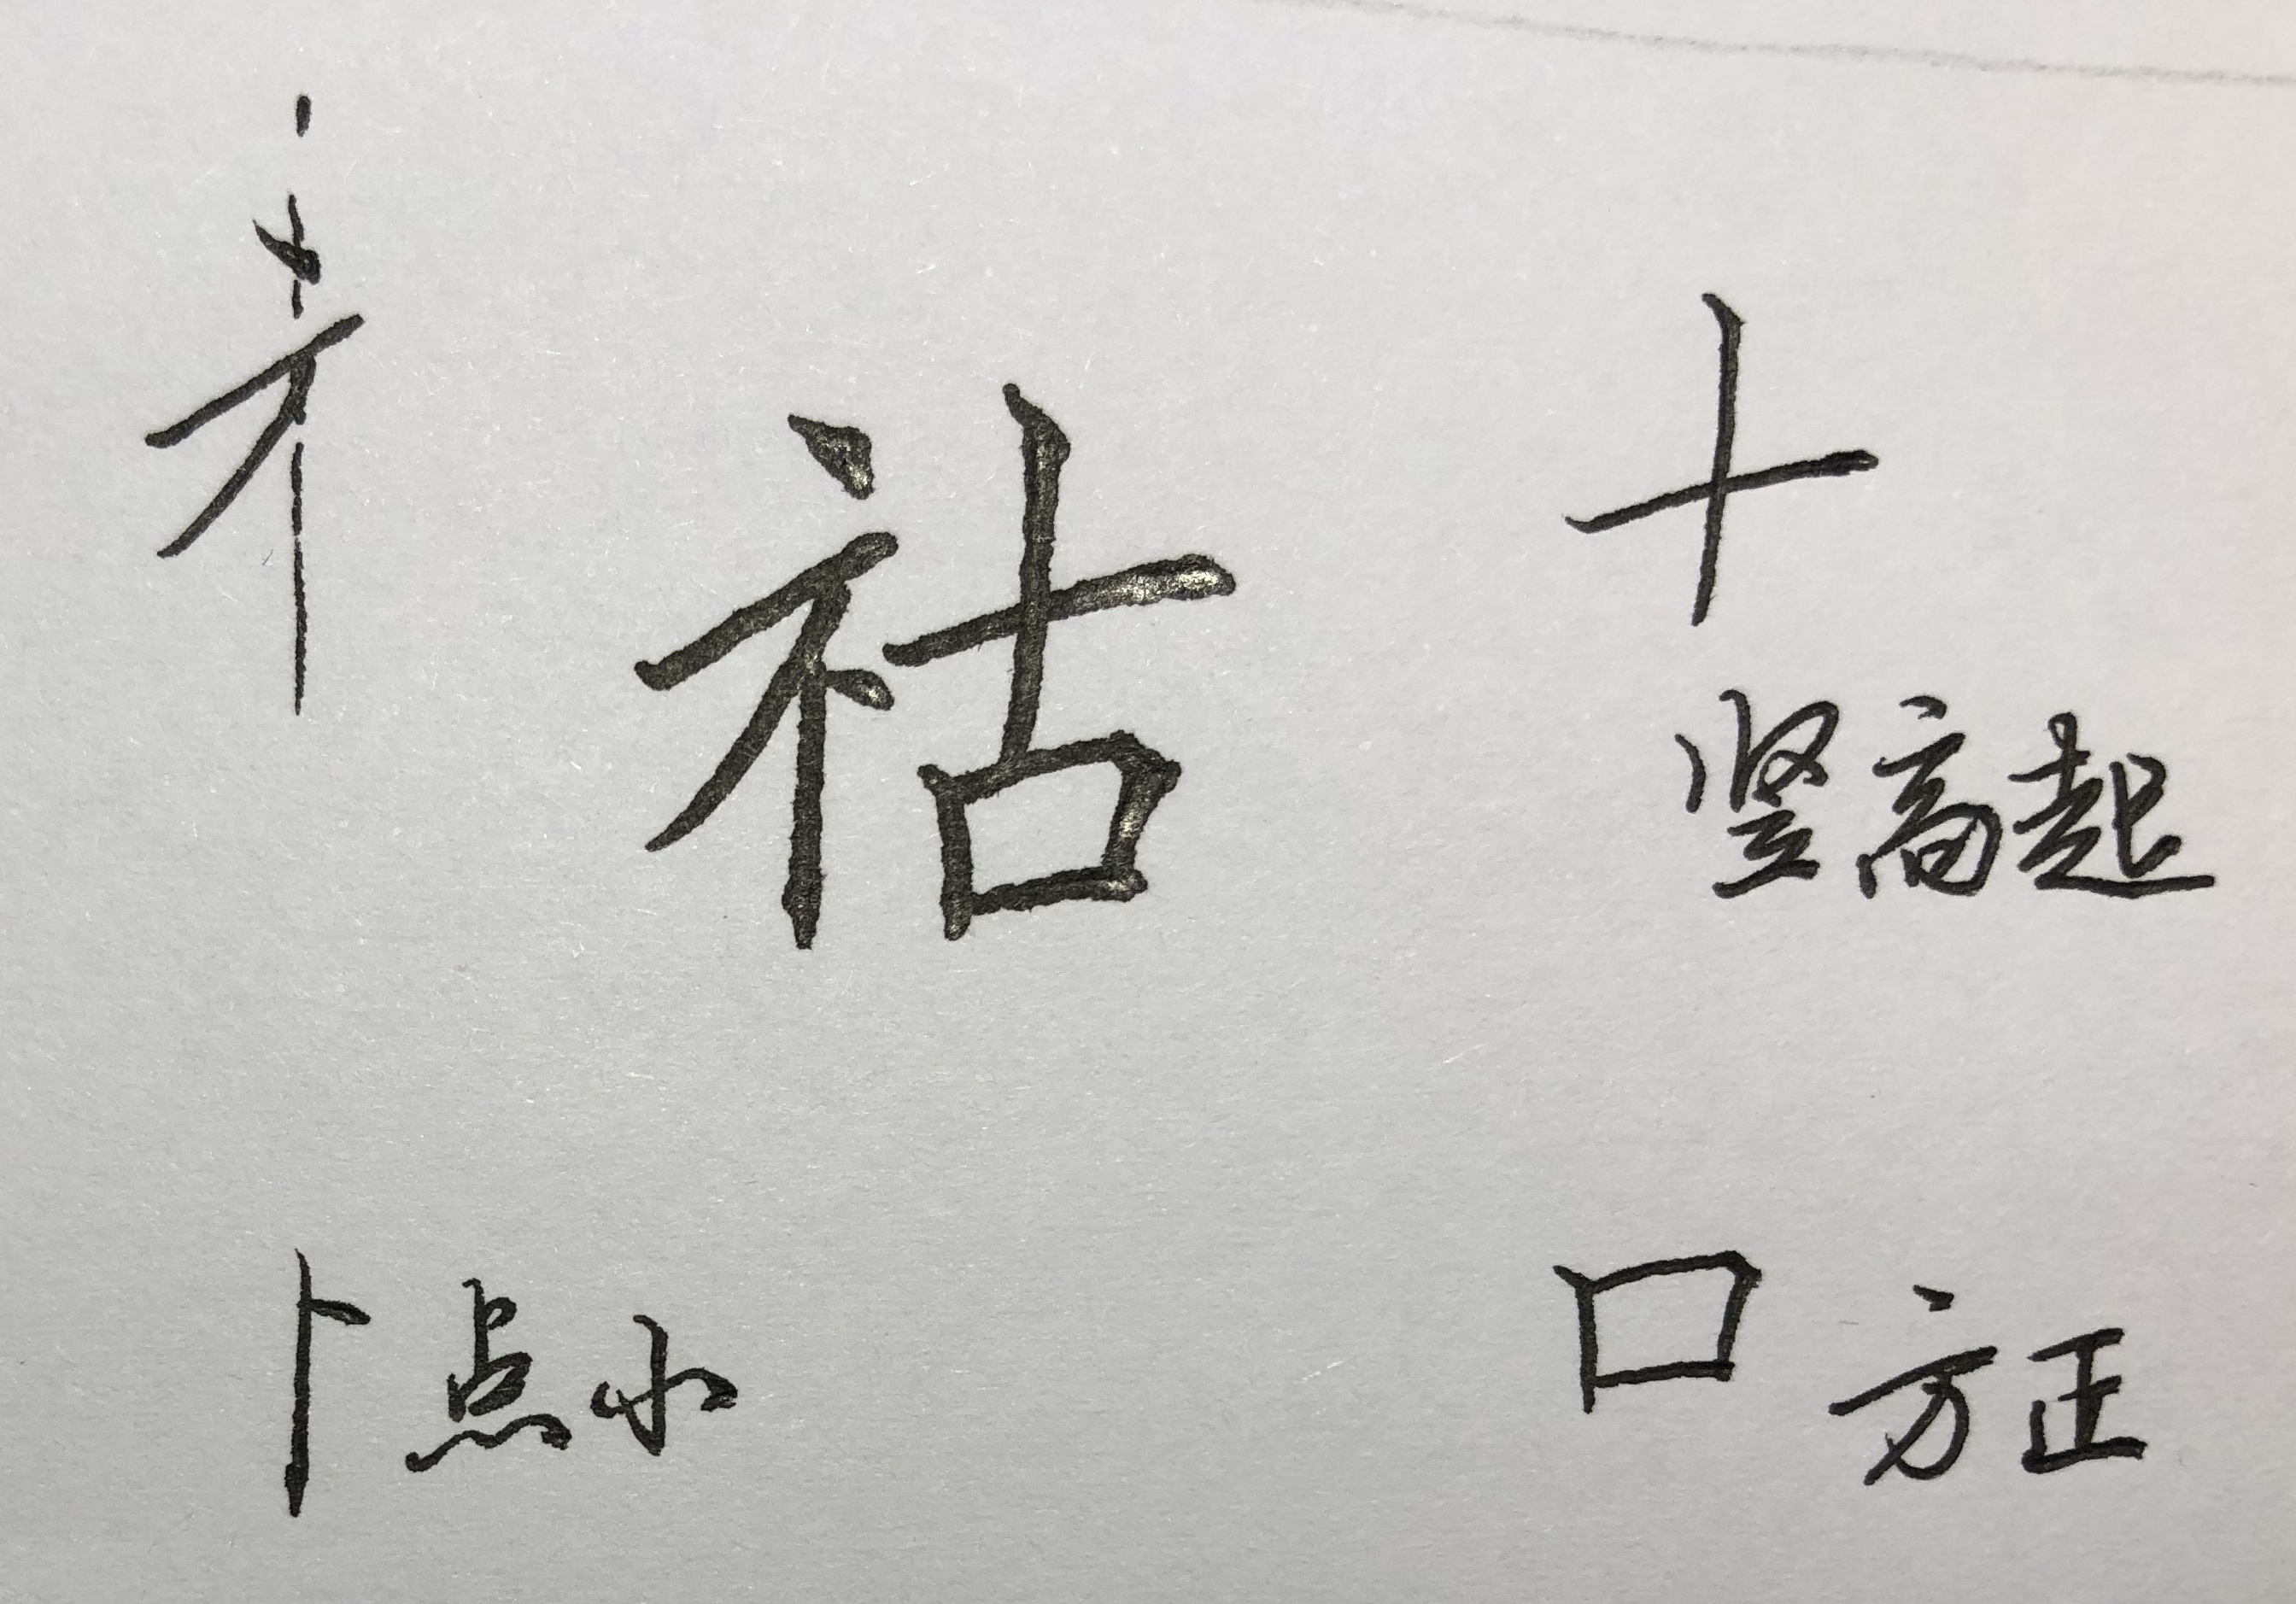 祜
十
竖高起
卜 点小
口 方正